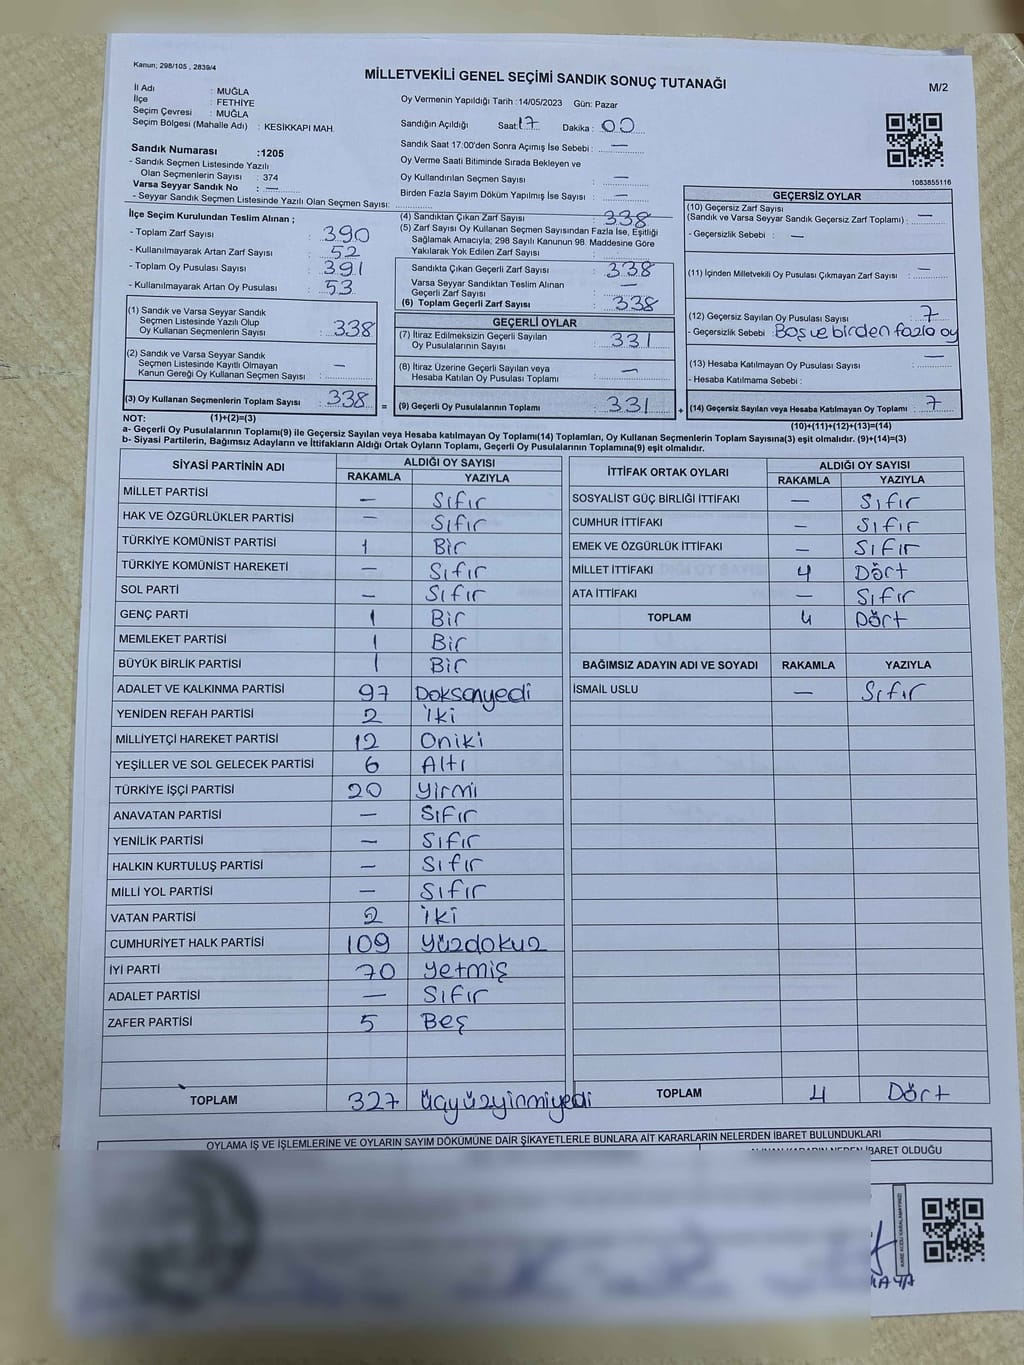 Kanun; 298/105 , 2839/4
MİLLETVEKİLİ GENEL SEÇİMİ SANDIK SONUÇ TUTANAĞI
M/2
İl Adı : MUĞLA
İlçe : FETHİYE
Seçim Çevresi : MUĞLA
Seçim Bölgesi (Mahalle Adı) : KESİKKAPI MAH.
Oy Vermenin Yapıldığı Tarih :14/05/2023 Gün: Pazar
Sandığın Açıldığı Saat: 17 Dakika : 00
Sandık Saat 17:00'den Sonra Açımış İse Sebebi : —
Oy Verme Saati Bitiminde Sırada Bekleyen ve
Oy Kullandırılan Seçmen Sayısı : —
Birden Fazla Sayım Döküm Yapılmış İse Sayısı : —
1083855116
Sandık Numarası :1205
- Sandık Seçmen Listesinde Yazılı
Olan Seçmenlerin Sayısı : 374
Varsa Seyyar Sandık No : —
- Seyyar Sandık Seçmen Listesinde Yazılı Olan Seçmen Sayısı:
İlçe Seçim Kurulundan Teslim Alınan ;
- Toplam Zarf Sayısı : 390
- Kullanılmayarak Artan Zarf Sayısı : 52
- Toplam Oy Pusulası Sayısı : 391
- Kullanılmayarak Artan Oy Pusulası : 53
(1) Sandık ve Varsa Seyyar Sandık
Seçmen Listesinde Yazılı Olup
Oy Kullanan Seçmenlerin Sayısı : 338
(2) Sandık ve Varsa Seyyar Sandık
Seçmen Listesinde Kayıtlı Olmayan
Kanun Gereği Oy Kullanan Seçmen Sayısı : —
(3) Oy Kullanan Seçmenlerin Toplam Sayısı : 338
(4) Sandıktan Çıkan Zarf Sayısı : 338
(5) Zarf Sayısı Oy Kullanan Seçmen Sayısından Fazla İse, Eşitliği
Sağlamak Amacıyla; 298 Sayılı Kanunun 98. Maddesine Göre
Yakılarak Yok Edilen Zarf Sayısı :
Sandıkta Çıkan Geçerli Zarf Sayısı : 338
Varsa Seyyar Sandıktan Teslim Alınan
Geçerli Zarf Sayısı : —
(6) Toplam Geçerli Zarf Sayısı : 338
GEÇERLİ OYLAR
(7) İtiraz Edilmeksizin Geçerli Sayılan
Oy Pusulalarının Sayısı : 331
(8) İtiraz Üzerine Geçerli Sayılan veya
Hesaba Katılan Oy Pusulası Toplamı : —
= (9) Geçerli Oy Pusulalarının Toplamı : 331
GEÇERSİZ OYLAR
(10) Geçersiz Zarf Sayısı
(Sandık ve Varsa Seyyar Sandık Geçersiz Zarf Toplamı) : —
- Geçersizlik Sebebi : —
(11) İçinden Milletvekili Oy Pusulası Çıkmayan Zarf Sayısı : —
(12) Geçersiz Sayılan Oy Pusulası Sayısı : 7
- Geçersizlik Sebebi : Boş ve birden fazla oy
(13) Hesaba Katılmayan Oy Pusulası Sayısı : —
- Hesaba Katılmama Sebebi :
+ (14) Geçersiz Sayılan veya Hesaba Katılmayan Oy Toplamı : 7
NOT: (1)+(2)=(3)
(10)+(11)+(12)+(13)=(14)
a- Geçerli Oy Pusulalarının Toplamı(9) ile Geçersiz Sayılan veya Hesaba katılmayan Oy Toplamı(14) Toplamları, Oy Kullanan Seçmenlerin Toplam Sayısına(3) eşit olmalıdır. (9)+(14)=(3)
b- Siyasi Partilerin, Bağımsız Adayların ve İttifakların Aldığı Ortak Oyların Toplamı, Geçerli Oy Pusulalarının Toplamına(9) eşit olmalıdır.
SİYASİ PARTİNİN ADI ALDIĞI OY SAYISI
RAKAMLA YAZIYLA
MİLLET PARTİSİ — Sıfır
HAK VE ÖZGÜRLÜKLER PARTİSİ — Sıfır
TÜRKİYE KOMÜNİST PARTİSİ 1 Bir
TÜRKİYE KOMÜNİST HAREKETİ — Sıfır
SOL PARTİ — Sıfır
GENÇ PARTİ 1 Bir
MEMLEKET PARTİSİ 1 Bir
BÜYÜK BİRLİK PARTİSİ 1 Bir
ADALET VE KALKINMA PARTİSİ 97 Doksanyedi
YENİDEN REFAH PARTİSİ 2 İki
MİLLİYETÇİ HAREKET PARTİSİ 12 Oniki
YEŞİLLER VE SOL GELECEK PARTİSİ 6 Altı
TÜRKİYE İŞÇİ PARTİSİ 20 Yirmi
ANAVATAN PARTİSİ — Sıfır
YENİLİK PARTİSİ — Sıfır
HALKIN KURTULUŞ PARTİSİ — Sıfır
MİLLİ YOL PARTİSİ — Sıfır
VATAN PARTİSİ 2 İki
CUMHURİYET HALK PARTİSİ 109 Yüzdokuz
İYİ PARTİ 70 Yetmiş
ADALET PARTİSİ — Sıfır
ZAFER PARTİSİ 5 Beş
TOPLAM 327 Üçyüzyirmiyedi
İTTİFAK ORTAK OYLARI ALDIĞI OY SAYISI
RAKAMLA YAZIYLA
SOSYALİST GÜÇ BİRLİĞİ İTTİFAKI — Sıfır
CUMHUR İTTİFAKI — Sıfır
EMEK VE ÖZGÜRLÜK İTTİFAKI — Sıfır
MİLLET İTTİFAKI 4 Dört
ATA İTTİFAKI — Sıfır
TOPLAM 4 Dört
BAĞIMSIZ ADAYIN ADI VE SOYADI RAKAMLA YAZIYLA
İSMAİL USLU — Sıfır
TOPLAM 4 Dört
OYLAMA İŞ VE İŞLEMLERİNE VE OYLARIN SAYIM DÖKÜMÜNE DAİR ŞİKAYETLERLE BUNLARA AİT KARARLARIN NELERDEN İBARET BULUNDUKLARI
İBARET OLDUĞU